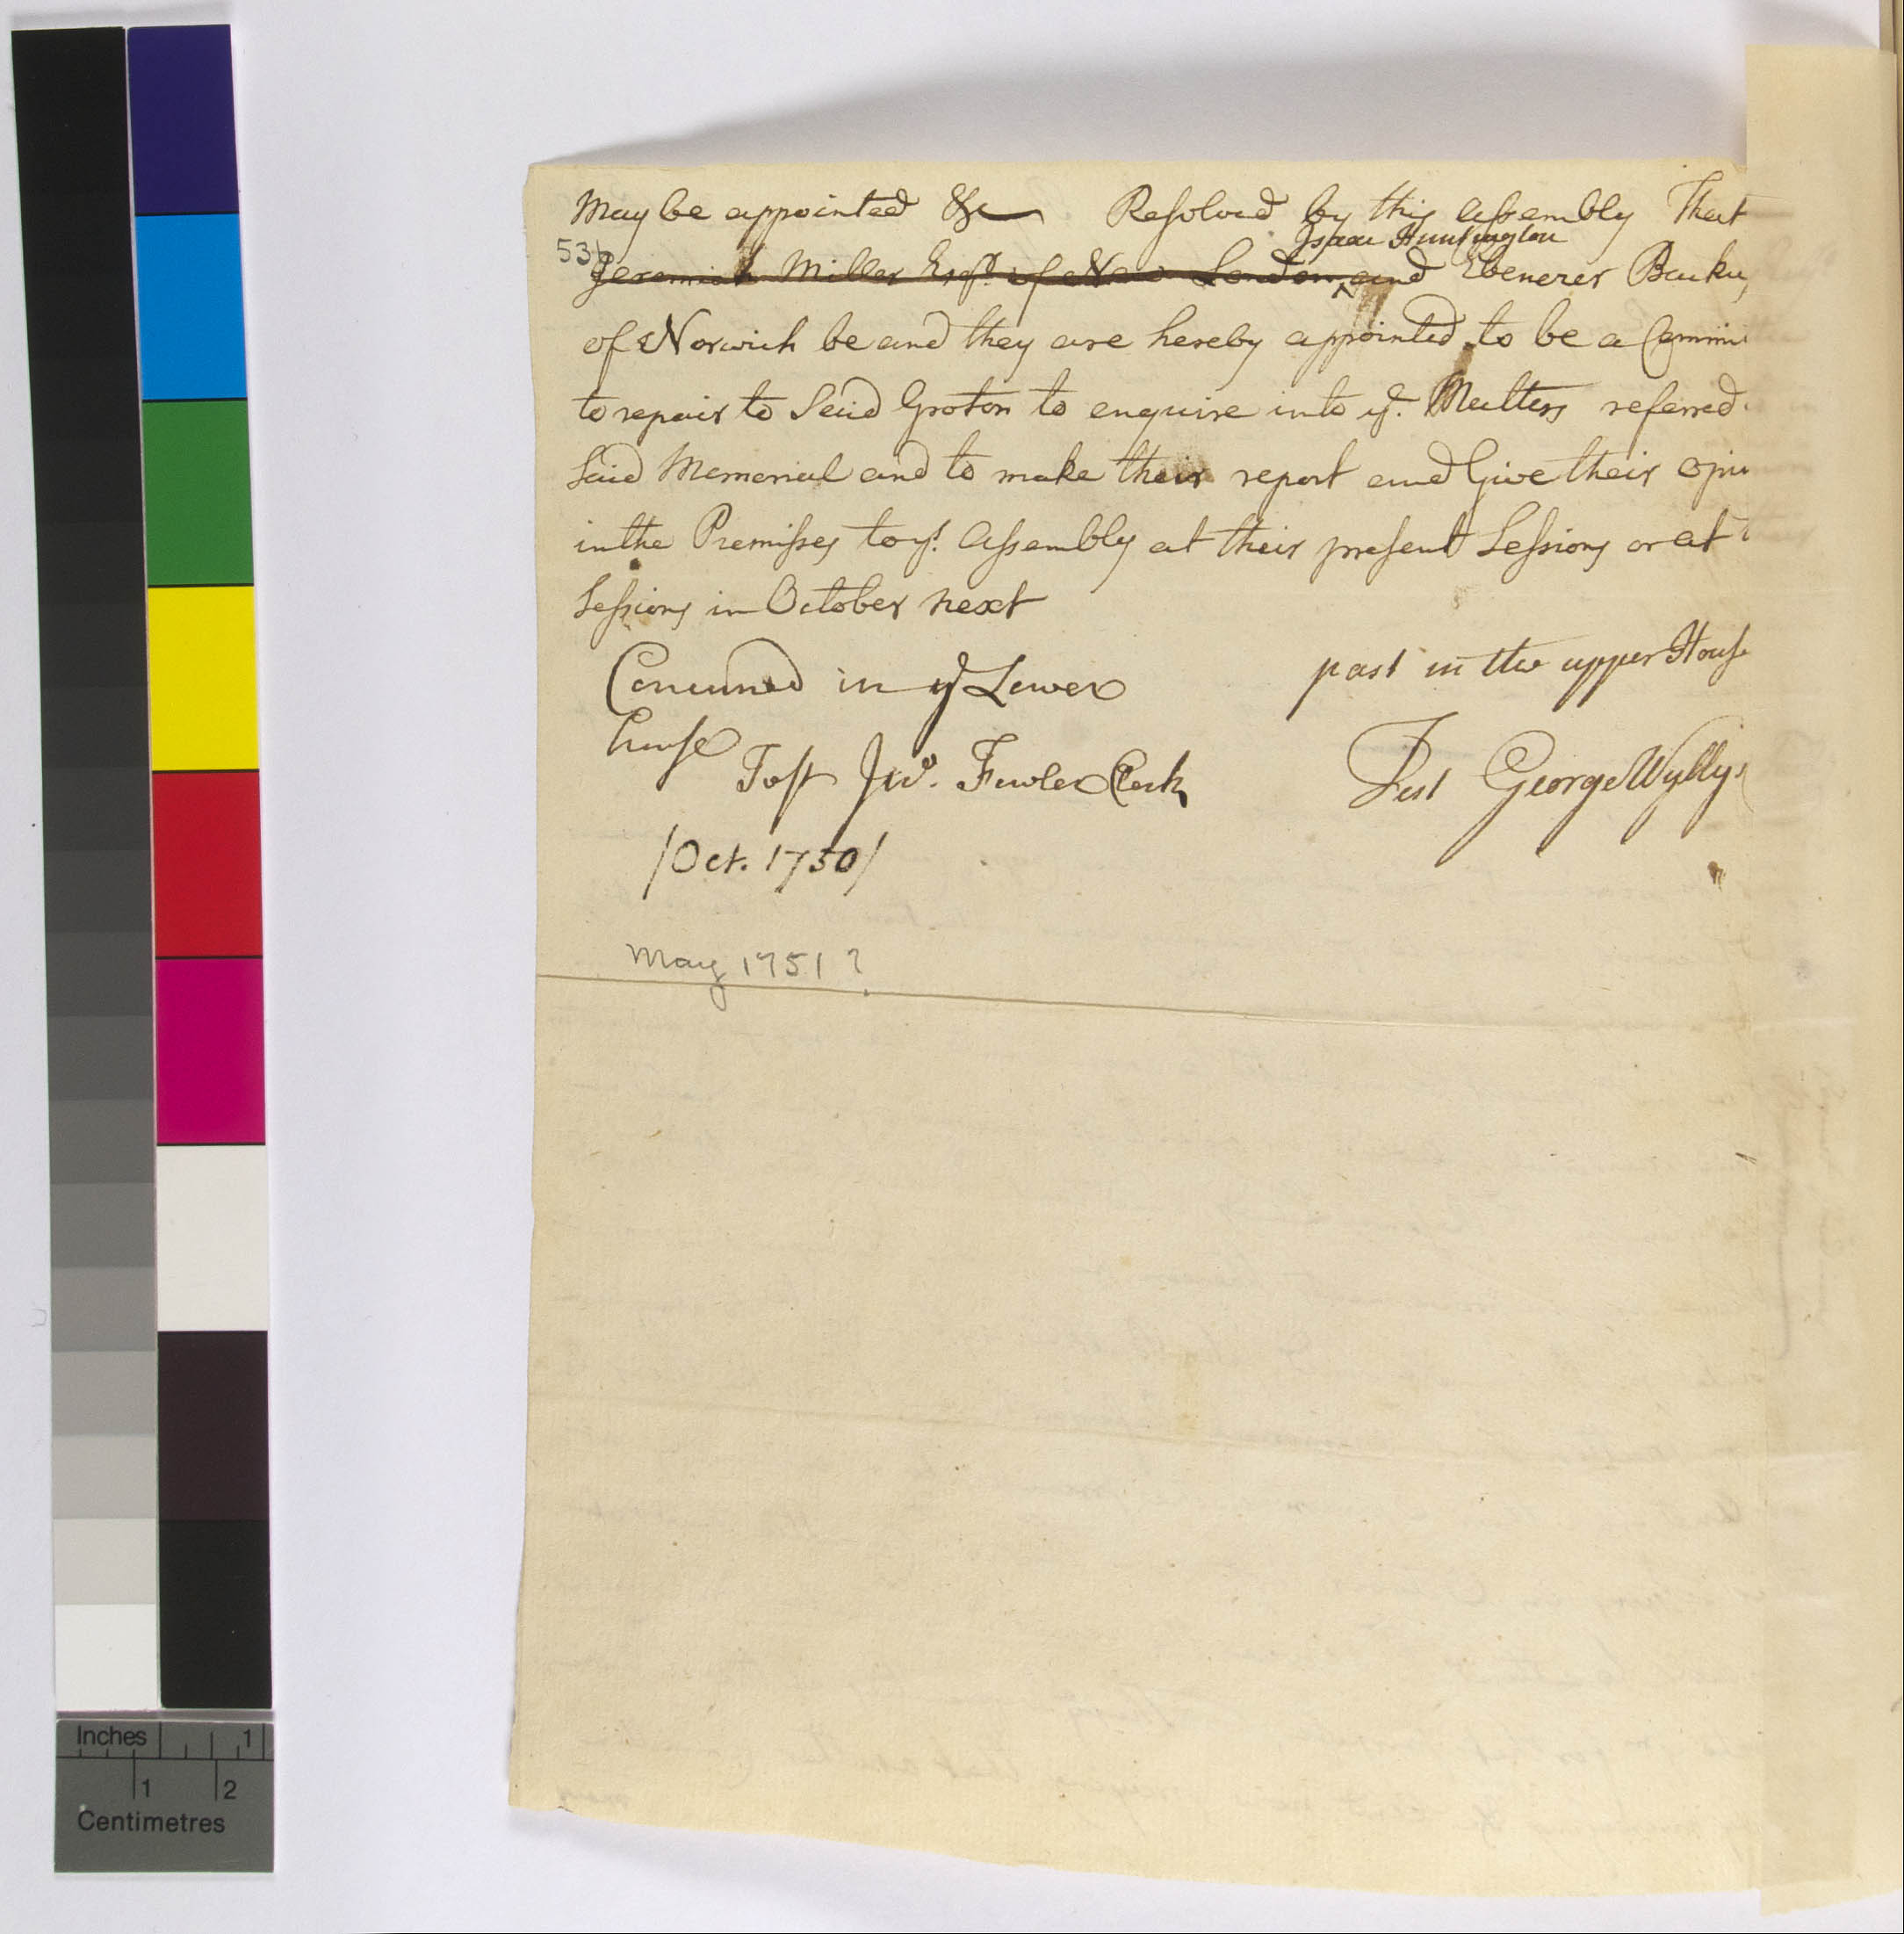 May be appointed &c Resolved by this Assembly That
53b
Isaac Huntington
Jeremiah Miller Esqr. of New London and Ebenezer Backus
of Norwich be and they are hereby appointed to be a Commi
to repair to Said Groton to enquire into ye. Matters referred
Said Memorial and to make their report and Give their opin
in the Premisses to ys. Assembly at their present Sessions or at
Sessions in October next
Concurrd in ye Lower
house
past in the upper House
Test Jno. Fowler Clerk
Test George Wyllys
/Oct. 1750/
May 1751?
Inches 1
1 2
Centimetres